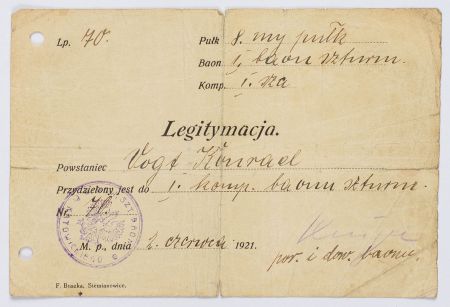 Lp. 70.
Pułk 8. my pułk
Baon I. baon szturm.
Komp. I. sza
Legitymacja.
Powstaniec Vogt Konrad
Przydzielony jest do I. komp. baonu szturm.
Nr. 70.
M. p., dnia 2. czerwca 1921.
por. i dow. baonu.
F. Buszka, Siemianowice.